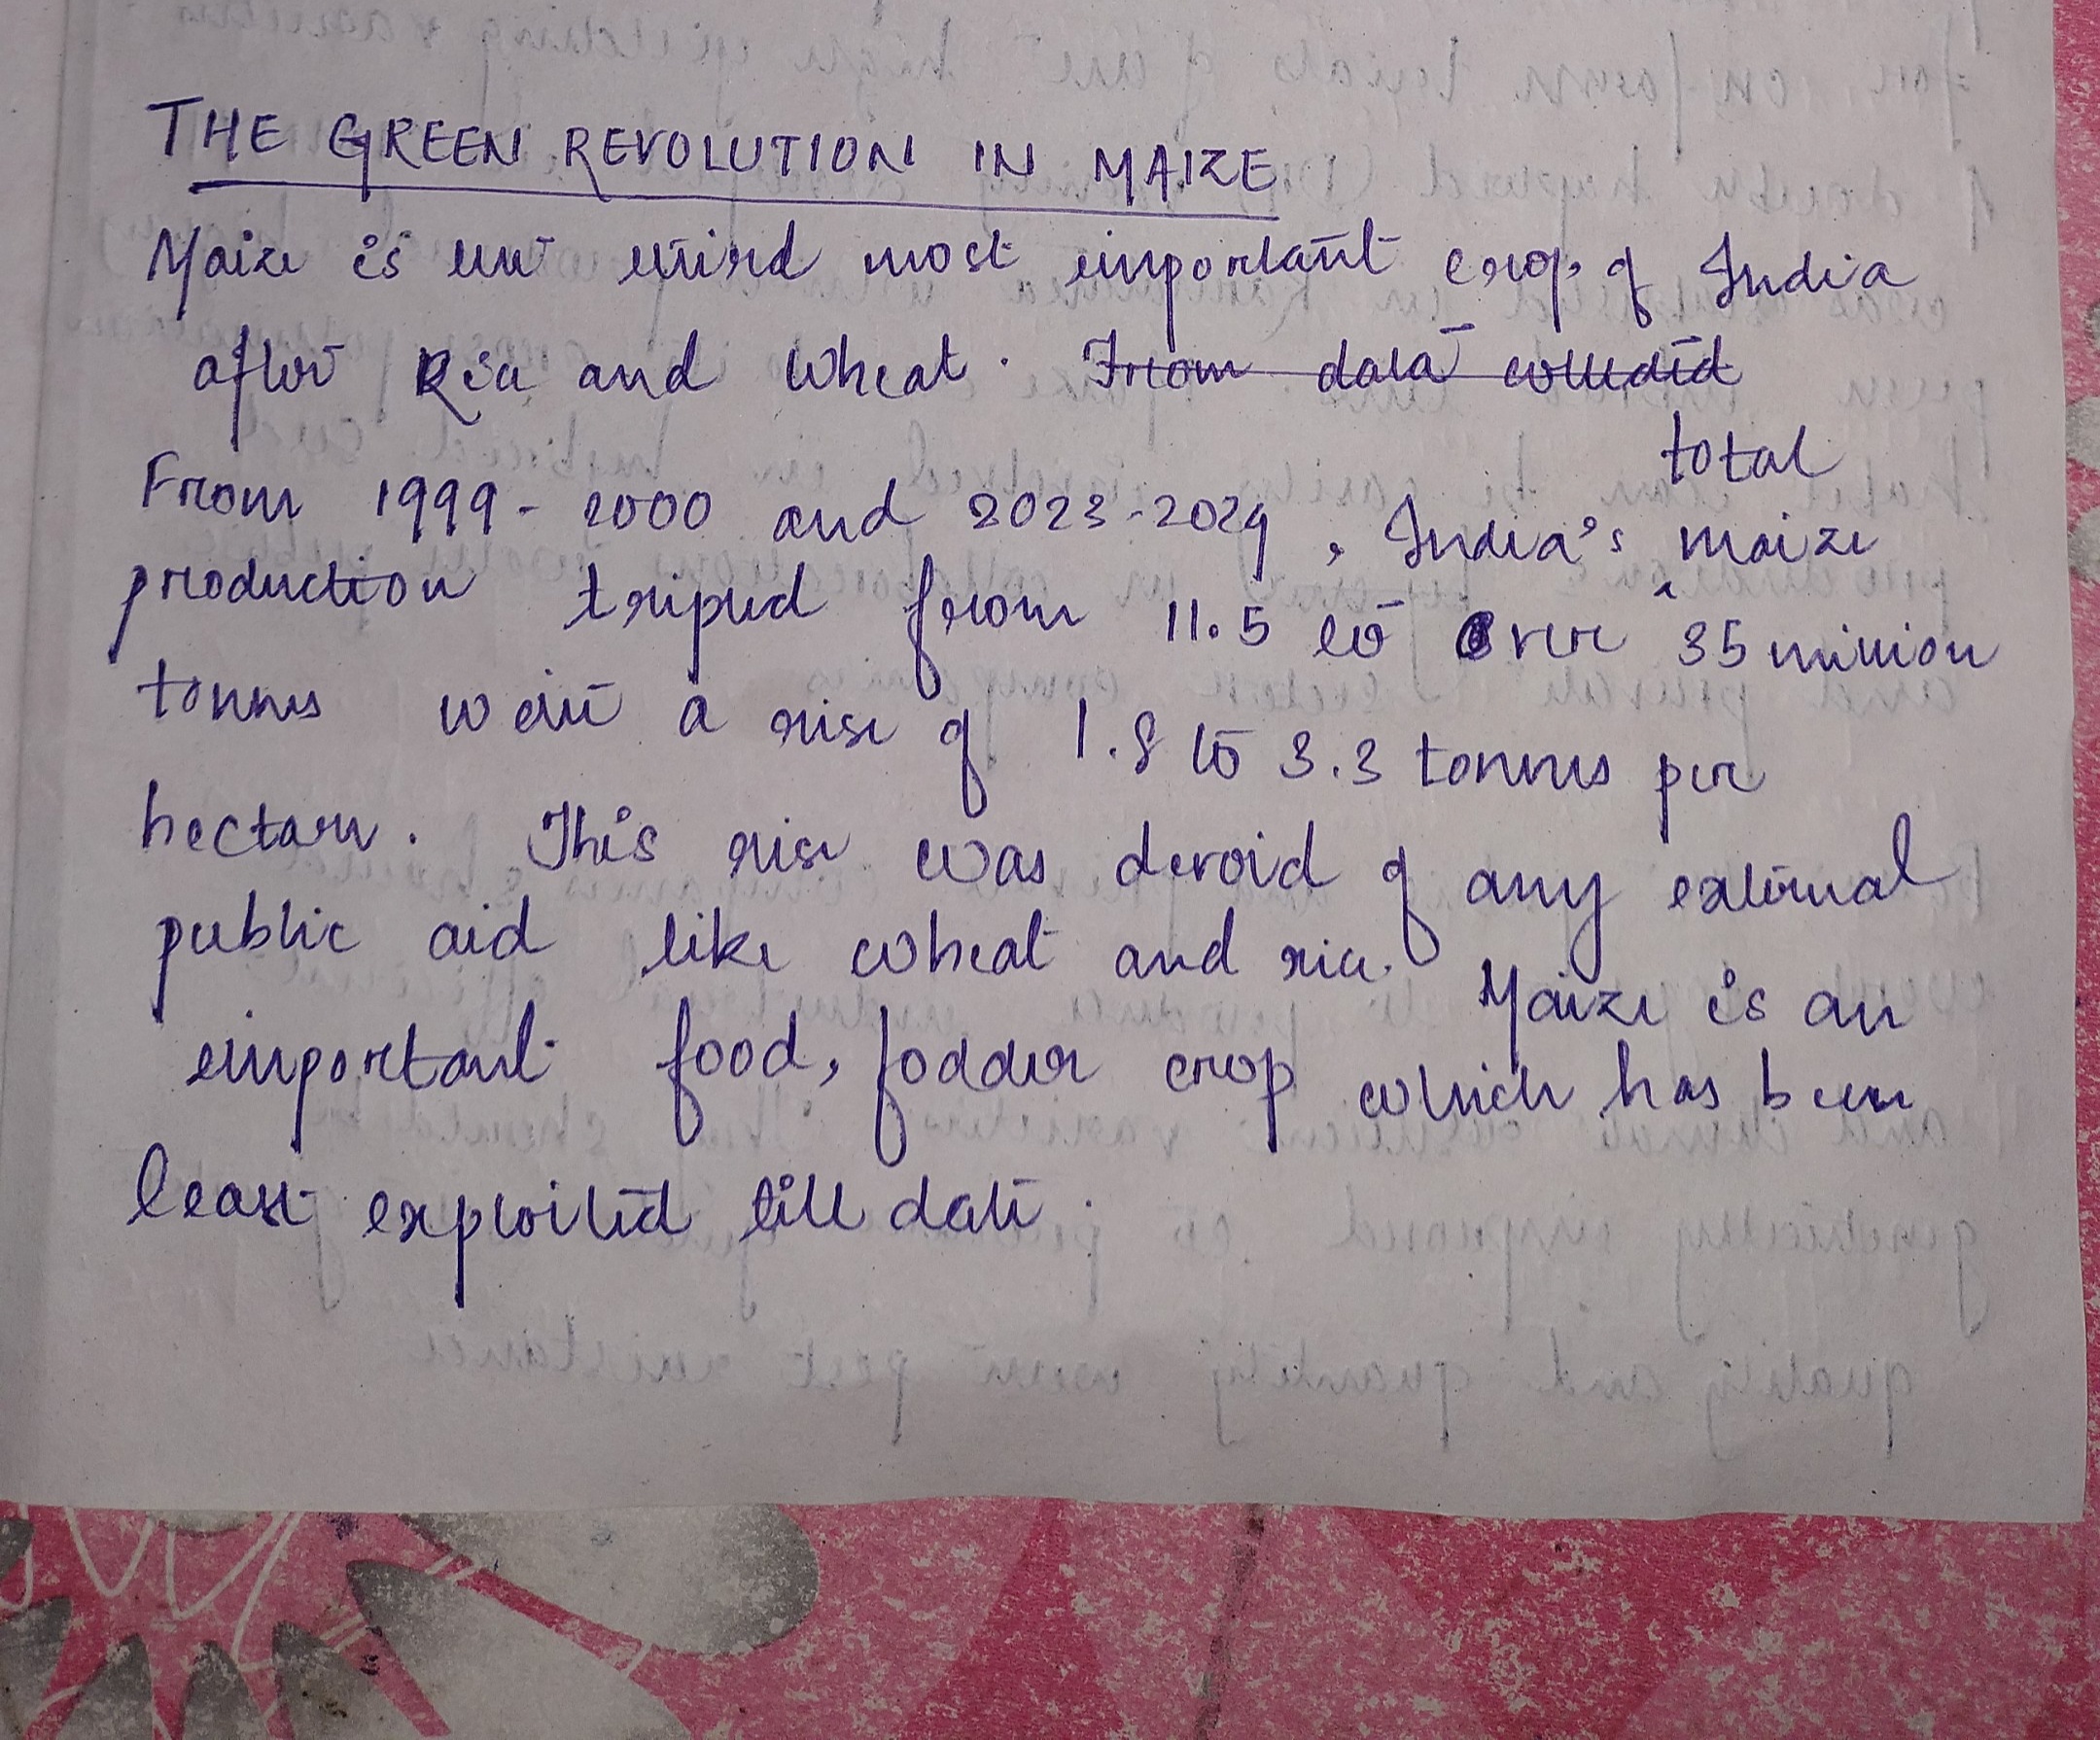 THE GREEN REVOLUTION IN MAIZE
Maize is the third most important crop of India
after Rice and wheat. ~~From data collected~~
total
From 1999-2000 and 2023-2024, India's ^ maize
production tripled from 11.5 to over 35 million
tonnes with a rise of 1.8 to 3.3 tonnes per
hectare. This rise was devoid of any external
public aid like wheat and rice. Maize is an
important food, fodder crop which has been
least exploited till date.